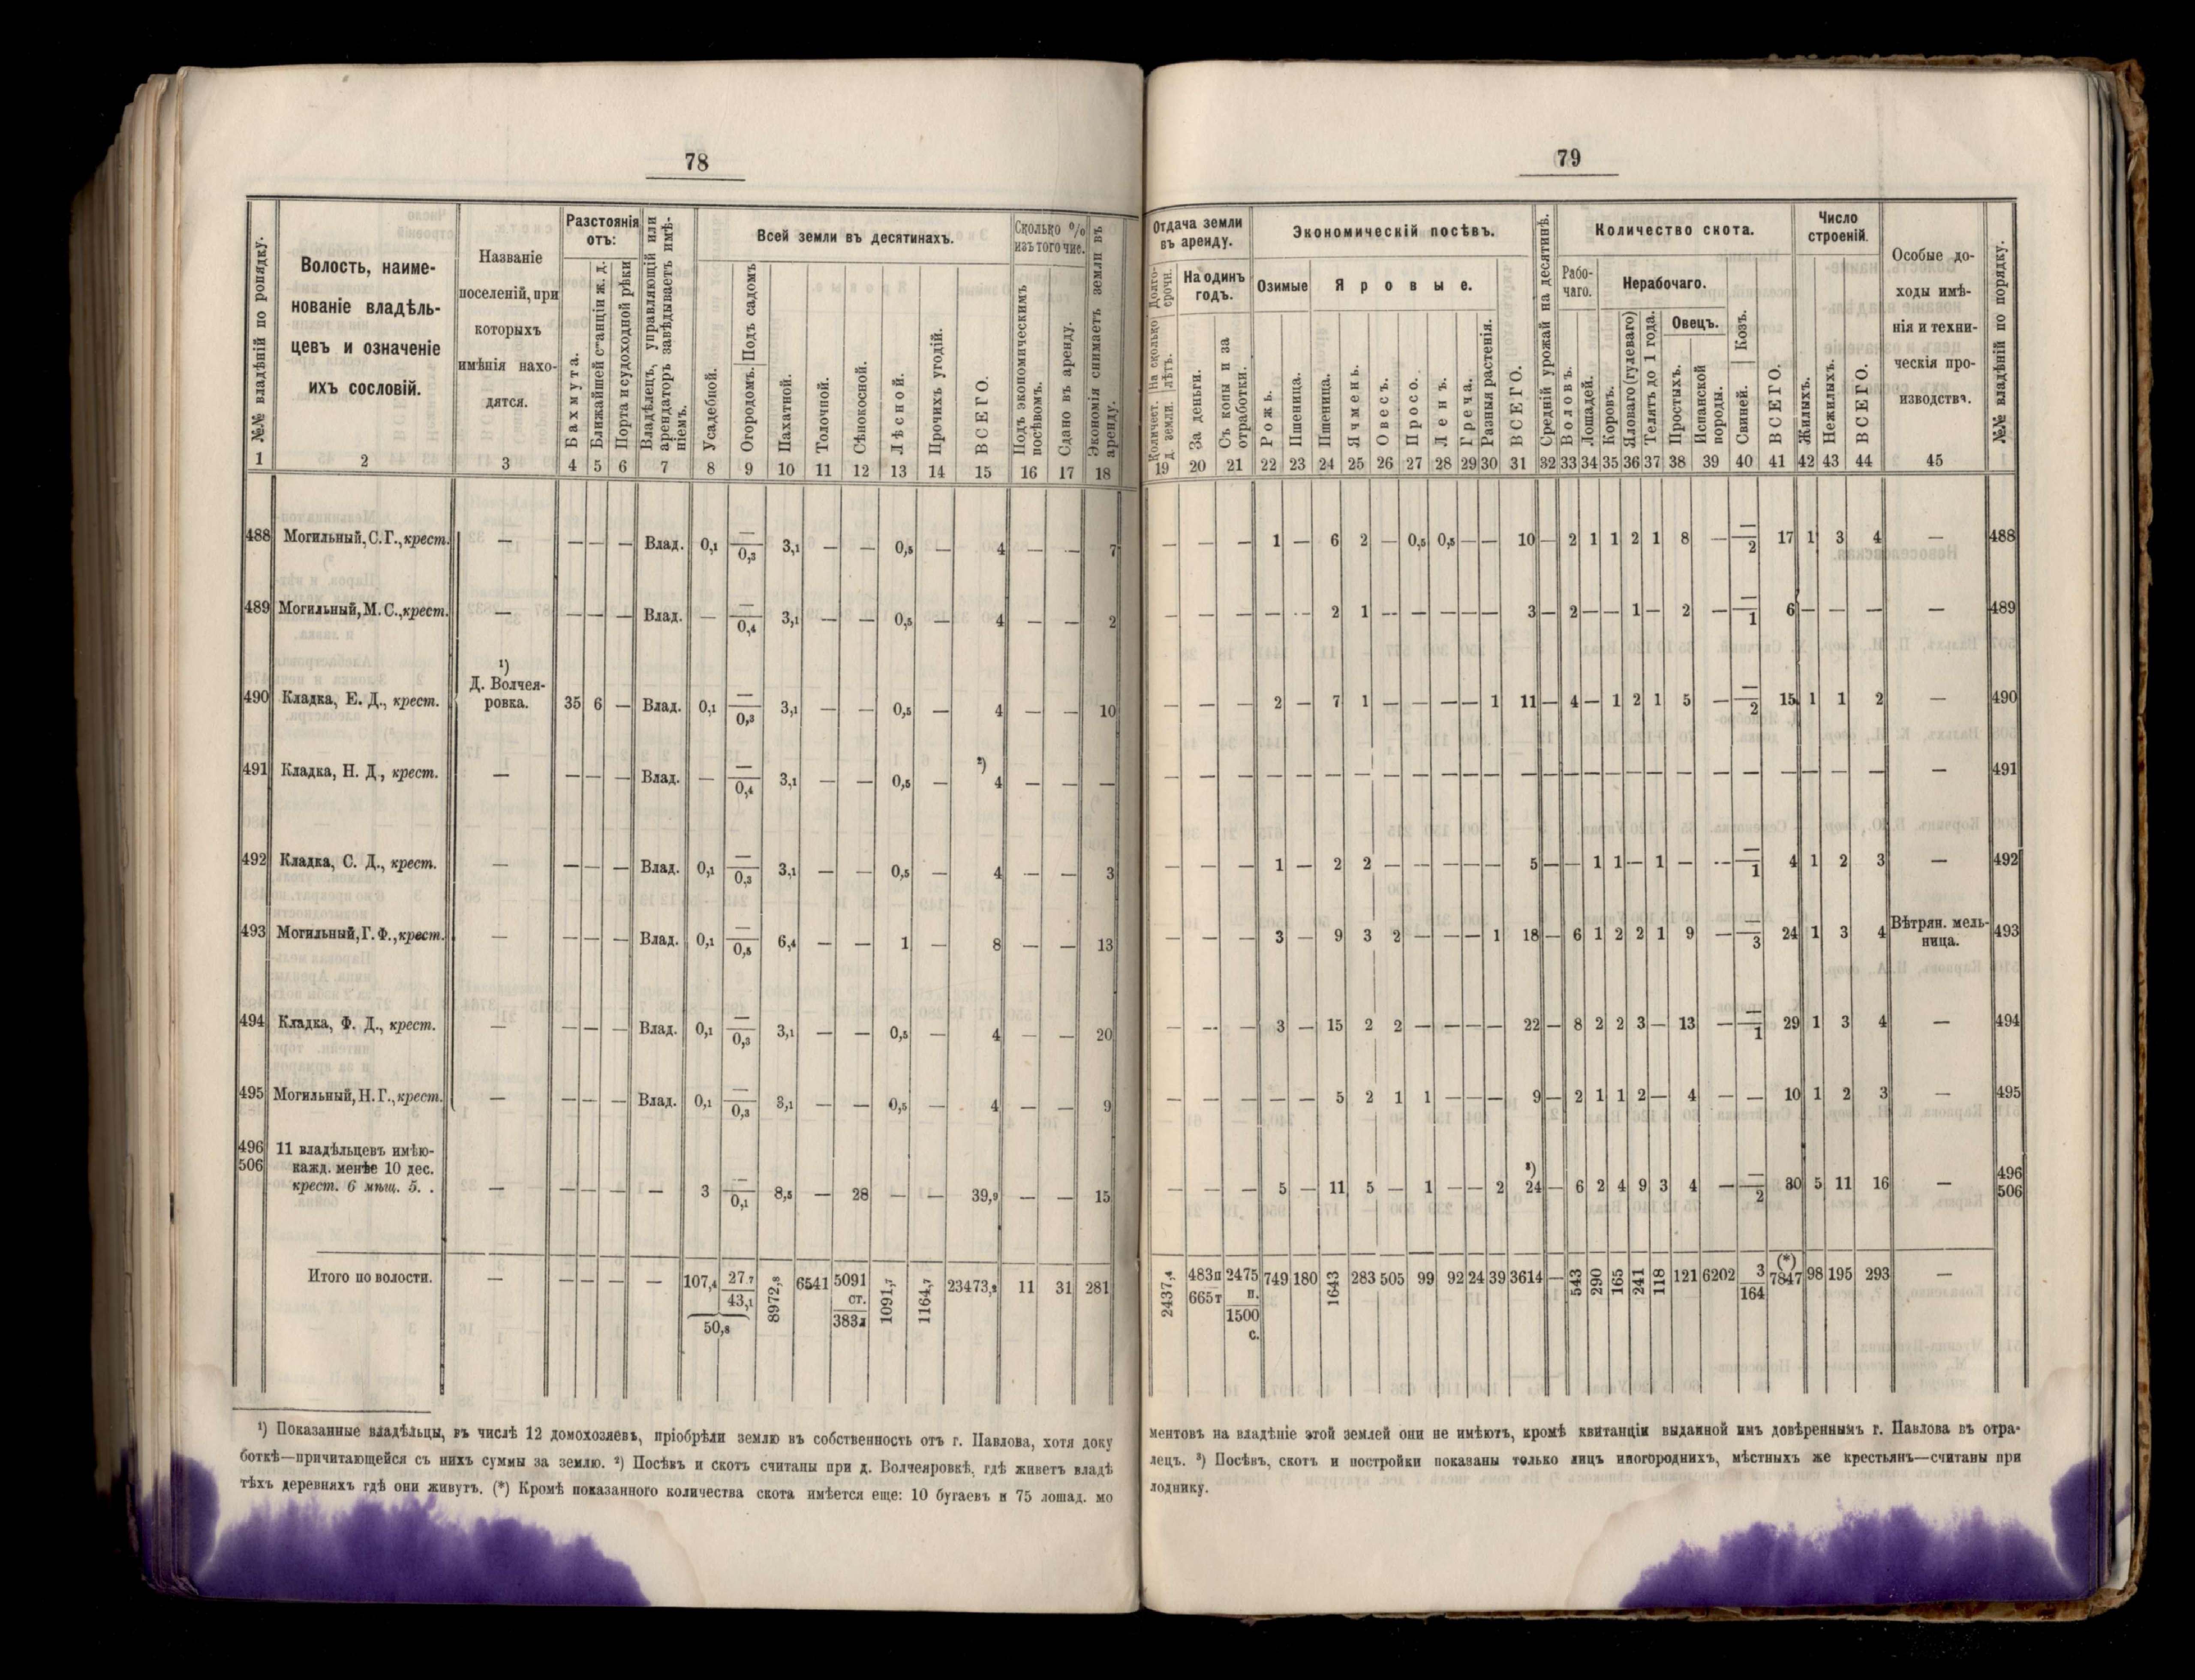 78
№№ владѣній по порядку.
Волость, наиме-
нованіе владѣль-
цевъ и означеніе
ихъ сословій.
Названіе
поселеній, при
которыхъ
имѣнія нахо-
дятся.
Разстоянія
отъ:
Бахмута.
Ближайшей станціи ж. д.
Порта и судоходной рѣки
Владѣлецъ, управляющій или
арендаторъ завѣдываетъ имѣ-
ніемъ.
Всей земли въ десятинахъ.
Усадебной.
Огородомъ. Подъ садомъ
Пахатной.
Толочной.
Сѣнокосной.
Лѣсной.
Прочихъ угодій.
ВСЕГО.
Сколько %
изъ того чис.
Подъ экономическимъ
посѣвомъ.
Сдано въ аренду.
Экономія снимаетъ земли въ
аренду.
1 2 3 4 5 6 7 8 9 10 11 12 13 14 15 16 17 18
488 Могильный, С. Г., крест. — — — — Влад. 0,1 —/0,3 3,1 — — 0,5 — 4 — — 7
489 Могильный, М. С., крест. — — — — Влад. — —/0,4 3,1 — — 0,5 — 4 — — 2
¹)
Д. Волчея-
490 Кладка, Е. Д., крест. ровка. 35 6 — Влад. 0,1 —/0,3 3,1 — — 0,5 — 4 — — 10
491 Кладка, Н. Д., крест. — — — — Влад. — —/0,4 3,1 — — 0,5 — ²) 4 — — —
492 Кладка, С. Д., крест. — — — — Влад. 0,1 —/0,3 3,1 — — 0,5 — 4 — — 3
493 Могильный, Г. Ф., крест. — — — — Влад. 0,1 —/0,5 6,4 — — 1 — 8 — — 13
494 Кладка, Ф. Д., крест. — — — — Влад. 0,1 —/0,3 3,1 — — 0,5 — 4 — — 20
495 Могильный, Н. Г., крест. — — — — Влад. 0,1 —/0,3 3,1 — — 0,5 — 4 — — 9
496 11 владѣльцевъ имѣю-
506 кажд. менѣе 10 дес.
крест. 6 мѣщ. 5. . — — — — — 3 —/0,1 8,5 — 28 — — 39,9 — — 15
Итого по волости. — — — — — 107,4 27,7/43,1 8972,8 6541 5091 ст./383л 1091,7 1164,7 23473,2 11 31 281
50,8
¹) Показанные владѣльцы, въ числѣ 12 домохозяевъ, пріобрѣли землю въ собственность отъ г. Павлова, хотя доку
боткѣ—причитающейся съ нихъ суммы за землю. ²) Посѣвъ и скотъ считаны при д. Волчеяровкѣ, гдѣ живетъ владѣ
тѣхъ деревняхъ гдѣ они живутъ. (*) Кромѣ показаннаго количества скота имѣется еще: 10 бугаевъ и 75 лошад. мо
79
Отдача земли
въ аренду.
Долго-
срочн.
Количест. На сколько
д. земли. лѣтъ.
На одинъ
годъ.
За деньги.
Съ копы и за
отработки.
Экономическій посѣвъ.
Озимые
Рожь.
Пшеница.
Яровые.
Пшеница.
Ячмень.
Овесъ.
Просо.
Ленъ.
Греча.
Разныя растенія.
ВСЕГО.
Средній урожай на десятинѣ.
Количество скота.
Рабо-
чаго.
Воловъ.
Лошадей.
Нерабочаго.
Коровъ.
Яловаго (гулеваго)
Телятъ до 1 года.
Овецъ.
Простыхъ.
Испанской
породы.
Свиней. Козъ.
ВСЕГО.
Число
строеній.
Жилыхъ.
Нежилыхъ.
ВСЕГО.
Особые до-
ходы имѣ-
нія и техни-
ческія про-
изводства.
№№ владѣній по порядку.
19 20 21 22 23 24 25 26 27 28 29 30 31 32 33 34 35 36 37 38 39 40 41 42 43 44 45
— — — 1 — 6 2 — 0,5 0,5 — — 10 — 2 1 1 2 1 8 — —/2 17 1 3 4 — 488
— — — — — 2 1 — — — — — 3 — 2 — — 1 — 2 — —/1 6 — — — — 489
— — — 2 — 7 1 — — — — 1 11 — 4 — 1 2 1 5 — —/2 15 1 1 2 — 490
— — — — — — — — — — — — — — — — — — — — — — — — — — — 491
— — — 1 — 2 2 — — — — — 5 — — 1 1 — 1 — — —/1 4 1 2 3 — 492
— — — 3 — 9 3 2 — — — 1 18 — 6 1 2 2 1 9 — —/3 24 1 3 4 Вѣтрян. мель-
ница. 493
— — — 3 — 15 2 2 — — — — 22 — 8 2 2 3 — 13 — —/1 29 1 3 4 — 494
— — — — — 5 2 1 1 — — — 9 — 2 1 1 2 — 4 — — 10 1 2 3 — 495
— — — 5 — 11 5 — 1 — — 2 ³) 24 — 6 2 4 9 3 4 — —/2 30 5 11 16 — 496
506
2437,4 483п/665т 2475 п./1500 с. 749 180 1643 283 505 99 92 24 39 3614 — 543 290 165 241 118 121 6202 3/164 (*) 7847 98 195 293 —
ментовъ на владѣніе этой землей они не имѣютъ, кромѣ квитанціи выданной имъ довѣреннымъ г. Павлова въ отра-
лецъ. ³) Посѣвъ, скотъ и постройки показаны только лицъ иногороднихъ, мѣстныхъ же крестьянъ—считаны при
лоднику.